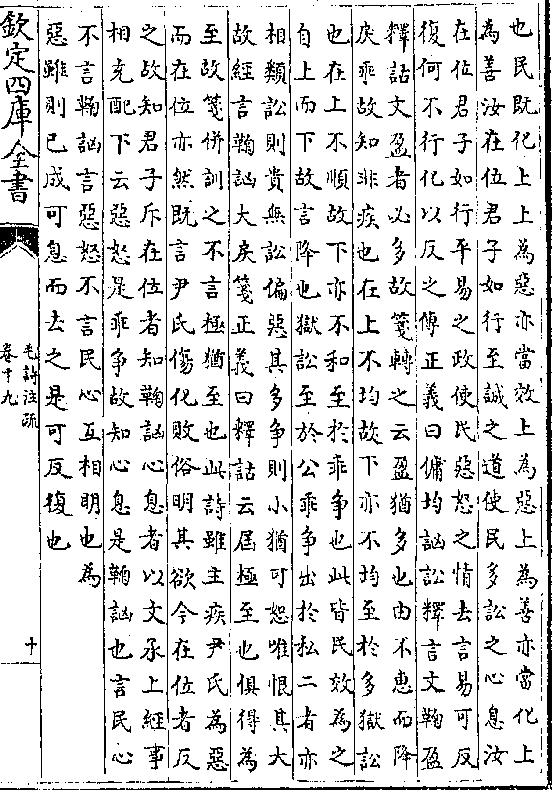 也民既化上上為惡亦當效上為惡上為善亦當化上
為善汝在位君子如行至誠之道使民多訟之心息汝
在位君子如行平易之政使民惡怒之情去言易可反
復何不行化以反之傳正義曰傭均訩訟釋言文鞠盈
釋詁文盈者必多故箋轉之云盈猶多也由不惠而降
戾乖故知非疾也在上不均故下亦不均至於多獄訟
也在上不順故下亦不和至於乖爭也此皆民效為之
自上而下故言降也獄訟至於公乖爭出於私二者亦
相類訟則貴無訟偏惡其多爭則小猶可恕唯恨其大
故經言鞠訩大戾箋正義曰釋詁云屆極至也俱得為
至故箋併訓之不言極猶至也此詩雖主疾尹氏為惡
而在位亦然既言尹氏傷化敗俗明其欲令在位者反
之故知君子斥在位者知鞠訩心息者以文承上經事
相充配下云惡怒是乖爭故知心息是鞠訩也言民心
不言鞠訩言惡怒不言民心互相明也為
惡雖則已成可息而去之是可反復也
欽定四庫全書
毛詩注疏
卷十九
十